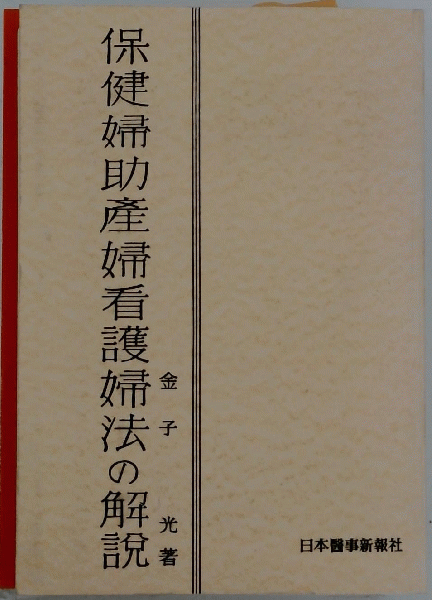 保健婦助產婦看護婦法の解説
金子光著
日本醫事新報社